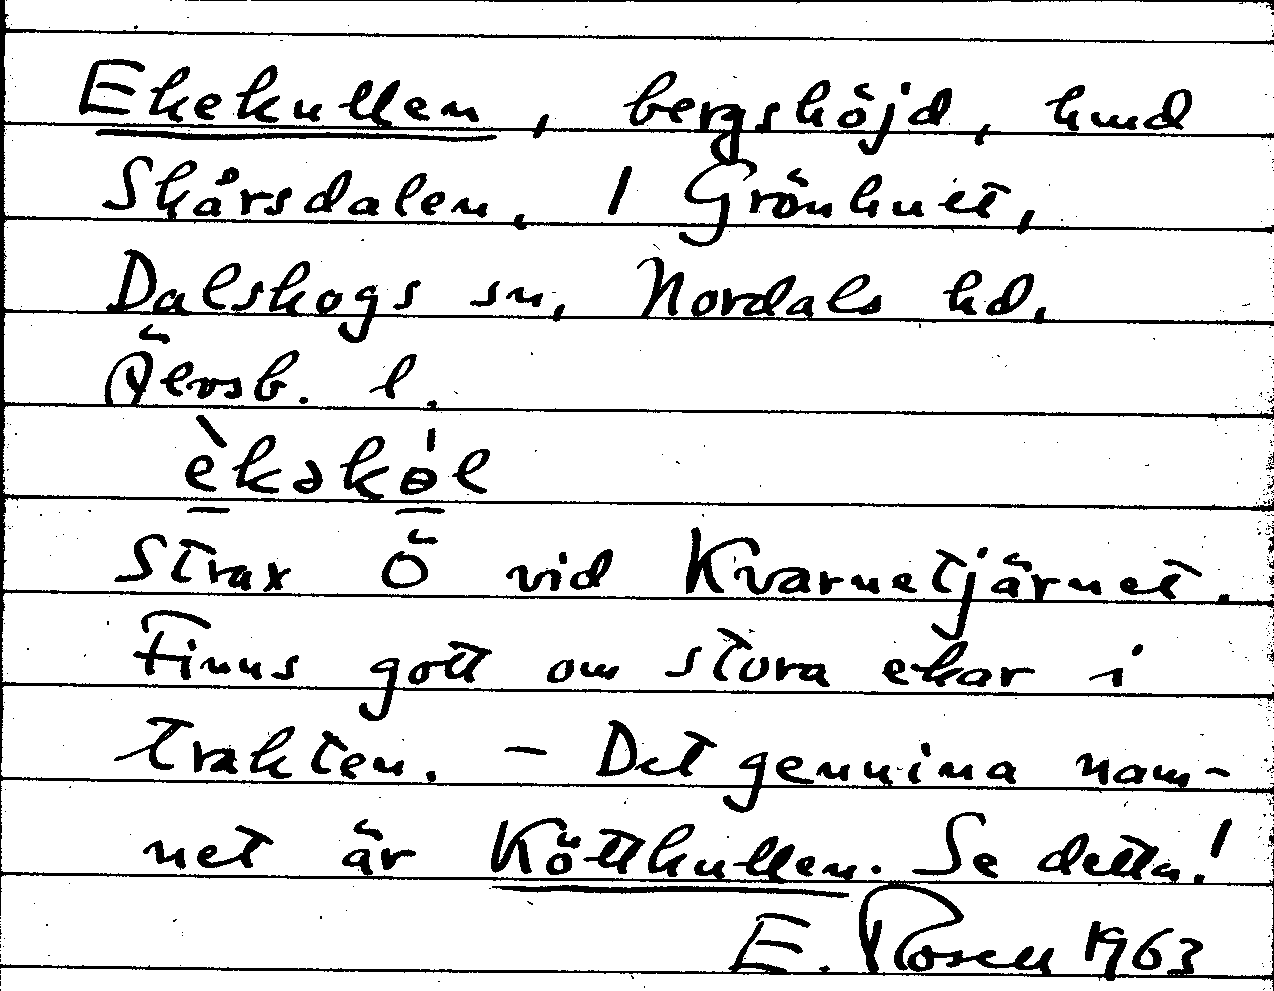 Ekekullen, bergshöjd, hmd
Skårsdalen, 1 Grönhult,
Dalskogs sn, Nordals hd.
Älvsb. l.
èkəkɵ̍l
Strax Ö vid Kvarnetjärnet.
Finns gott om stora ekar i
trakten. – Det genuina nam-
net är Köttkullen. Se detta!
E. Rosell 1963